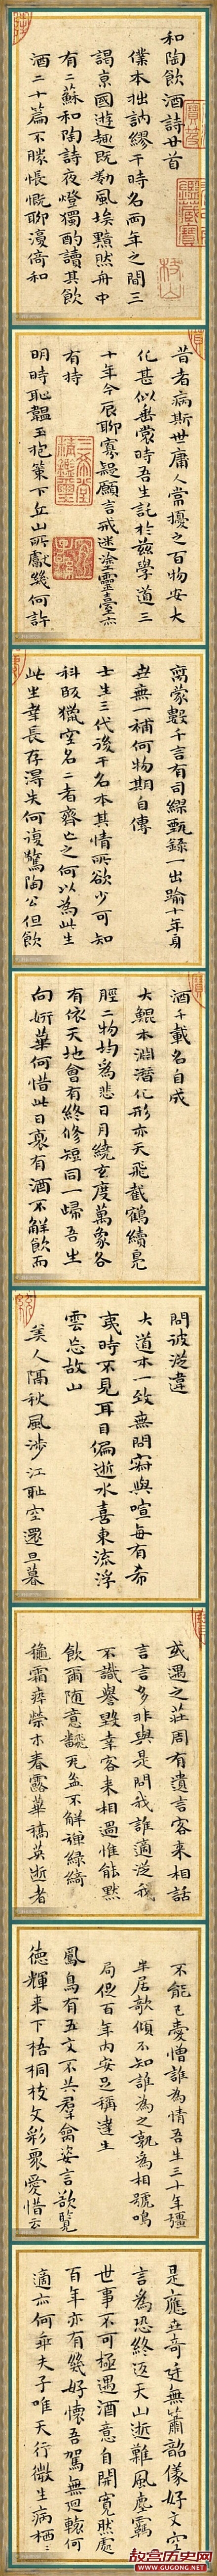 和陶飲酒詩廿首
僕本拙訥繆干時名兩年之間三
謁京國遊趣既勌風埃黯然舟中
有二蘇和陶詩夜燈獨酌讀其飲
酒二十篇不勝悵慨聊濩倚和
昔者病斯世庸人常擾之百物安大
化甚似無當時吾生託於茲學道三
十年今辰聊寡疑願言戒迷塗靈臺亦
有持
明時恥韞玉抱策下丘山所獻幾何許
高蒙數千言有司繆甄錄一出踰十年身
世無一補何物期自傳
士生三代後干名本其情所欲少可知
科段獵室名二者齊亡之何以為此生
此生羣長存得失何復驚陶公但飲
酒千載名自成
大鯤本淵潛化形亦天飛截鶴續鳧
脛二物均為悲日月繞玄度萬象各
有依天地會有終修短同一歸吾生
向妍華何惜此日衰有酒不解飲而
問彼從違
大道本一致無問寂與喧每有希
夷時不見耳目偏逝水喜東流浮
雲忘故山
美人隔秋風涉江耻空還旦暮
或遇之莊周有遺言客來相話
言言多非與是問我誰適從我
不識譽毀幸客來相過惟能默
飲爾隨意
穠霜瘁榮木春露華槁英逝者
不能已憂憎誰為情吾生三十年彊
半居欹傾不知誰為之孰為相號鳴
局促百年內安足稱達生
鳳鳥有五文不共羣禽姿言欲覽
德輝來下梧桐枝文彩眾愛惜云
是應世奇廷無簫韶儀好文空
言為恐終返天山逝難風塵羈
世事不可極遇酒意自開寬然處
百年亦有幾好懷吾駕無迴轍何
適亦何乖夫子唯天行微生病栖〻
三希堂精鑑璽
鑑藏寶
故宫历史网
WWW.GUGONG.NET